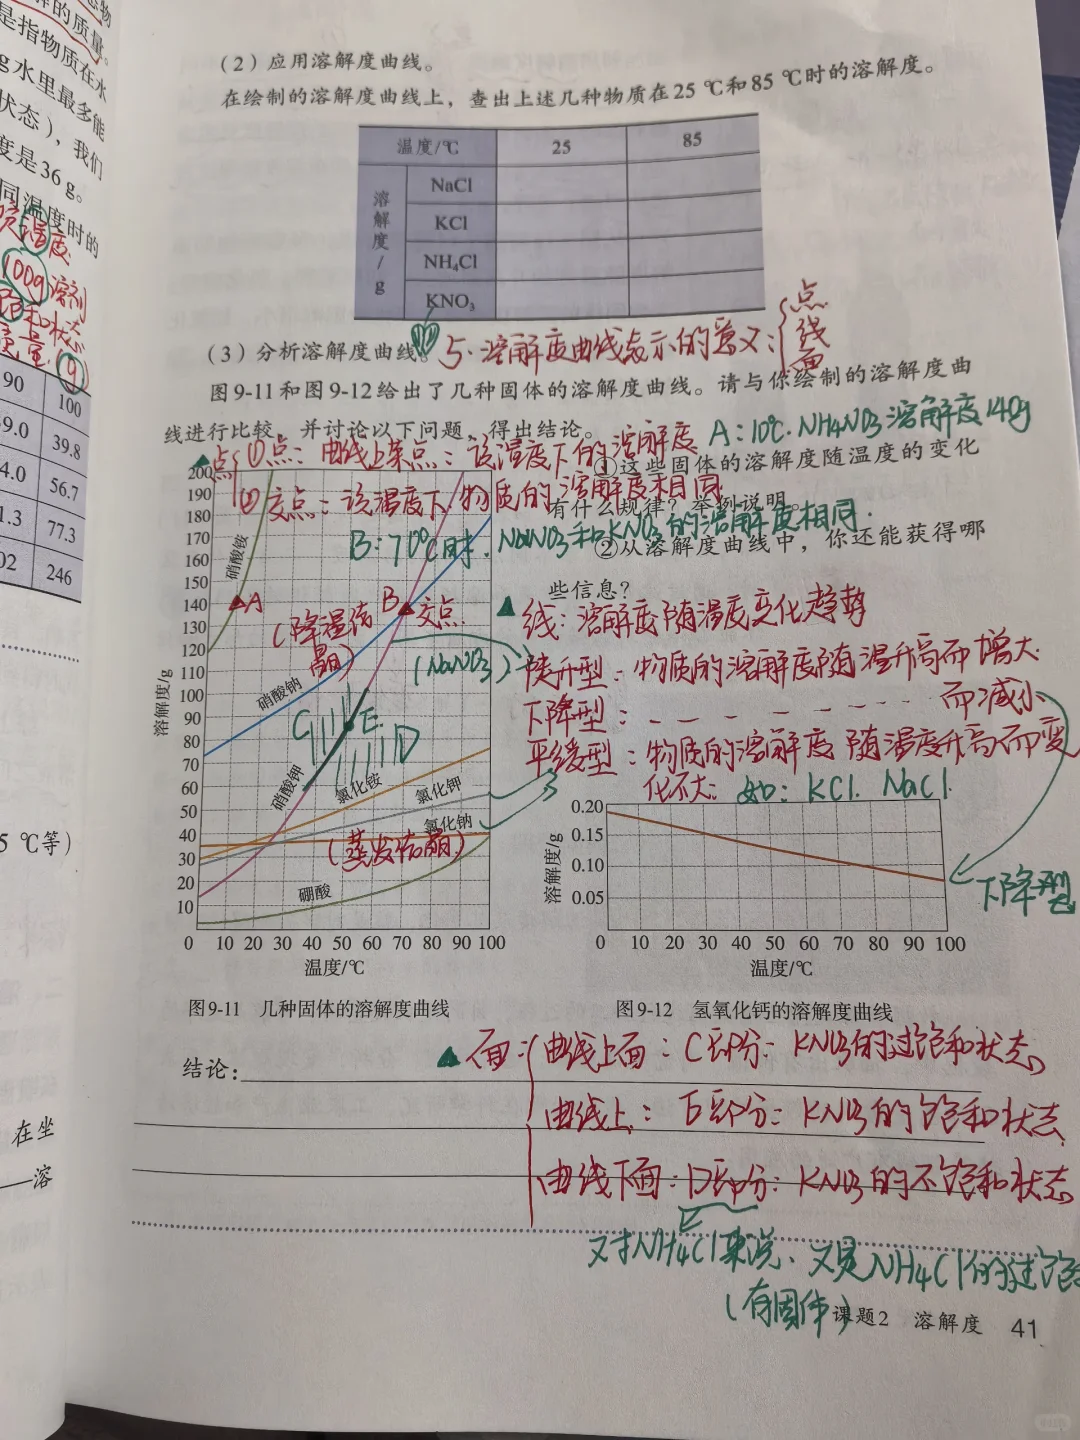 态物
解的质量。
是指物质在水
g水里最多能
状态），我们
度是36 g。
同温度时的
温度
100g溶剂
饱和状态
质量(g)
90 100
39.8
4.0 56.7
1.3 77.3
02 246
5 ℃等）
在坐
——溶
（2）应用溶解度曲线。
在绘制的溶解度曲线上，查出上述几种物质在25 ℃和85 ℃时的溶解度。
温度/℃ 25 85
溶解度/g
NaCl
KCl
NH₄Cl
KNO₃
（3）分析溶解度曲线。
5、溶解度曲线表示的意义：
点
线
面
图9-11和图9-12给出了几种固体的溶解度曲线。请与你绘制的溶解度曲
线进行比较，并讨论以下问题，得出结论。
A：10℃.NH4NO3溶解度140g
点
①点：曲线上某点：该温度下的溶解度
①这些固体的溶解度随温度的变化
②交点：该温度下/物质的溶解度相同
有什么规律？举例说明。
B：70℃时.NaNO3和KNO3的溶解度相同.
②从溶解度曲线中，你还能获得哪
些信息？
线：溶解度随温度变化趋势
陡升型：物质的溶解度随温升高而增大
下降型：－－－－－ 而减小
平缓型：物质的溶解度随温度升高而变
化不大：如：KCl. NaCl.
溶解度/g
200
190
180
170
160
150
140
130
120
110
100
90
80
70
60
50
40
30
20
10
0 10 20 30 40 50 60 70 80 90 100
温度/℃
硝酸铵
A
（降温结
晶）
B 交点
(NaNO3)
硝酸钠
C E D
硝酸钾
氯化铵
氯化钾
氯化钠
（蒸发结晶）
硼酸
溶解度/g
0.20
0.15
0.10
0.05
0 10 20 30 40 50 60 70 80 90 100
温度/℃
下降型
图9-11 几种固体的溶解度曲线
图9-12 氢氧化钙的溶解度曲线
结论：
面：
曲线上面：C部分：KNO3的过饱和状态
曲线上：E部分：KNO3的饱和状态
曲线下面：D部分：KNO3的不饱和状态
对NH4Cl来说、又是NH4Cl的过饱
（有固体）
课题2 溶解度 41